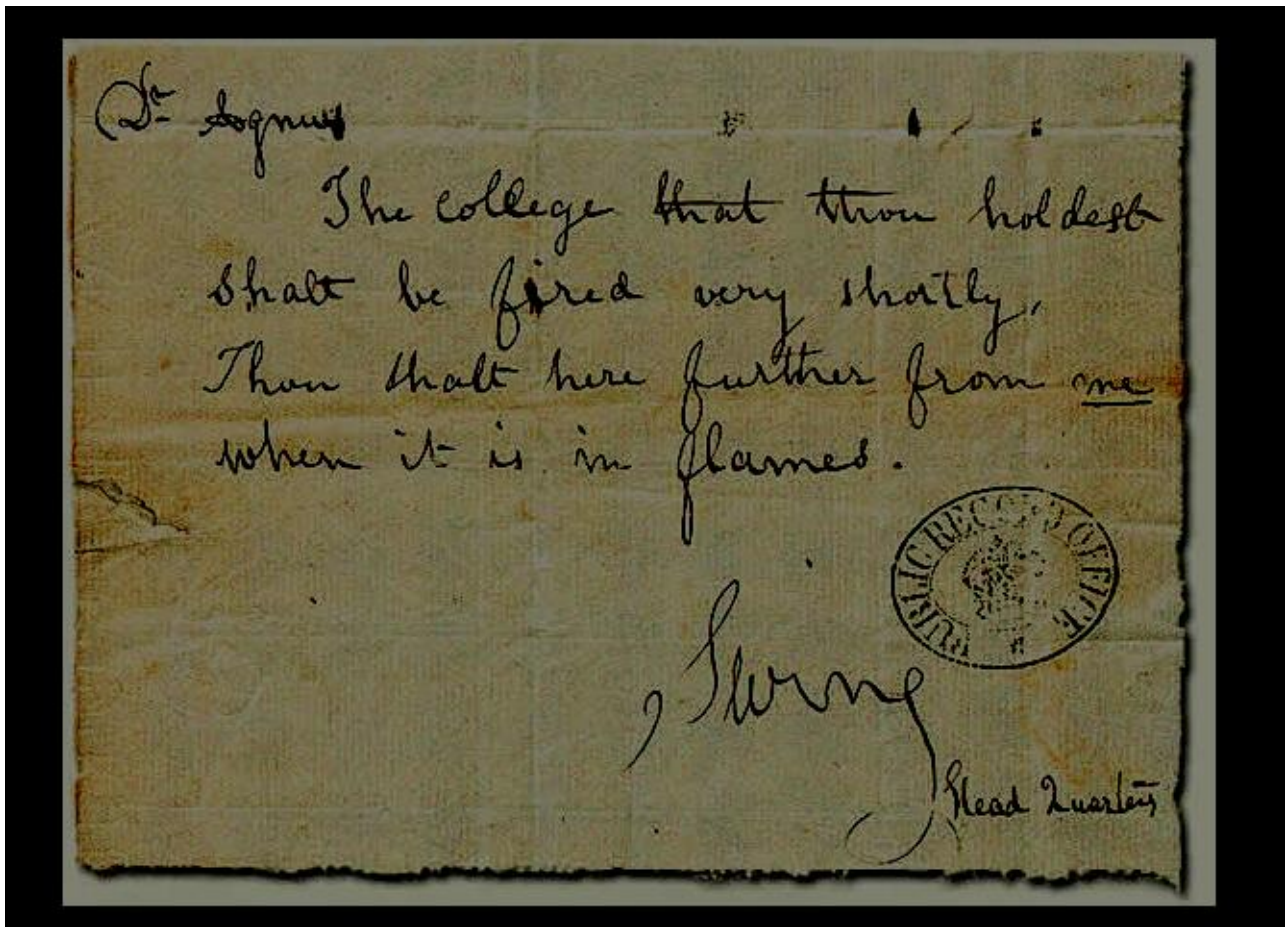 Dr
The college that thou holdest
shalt be fired very shortly,
Thou shalt here further from me
when it is in flames.
PUBLIC RECORD OFFICE
Swing
Head Quarters